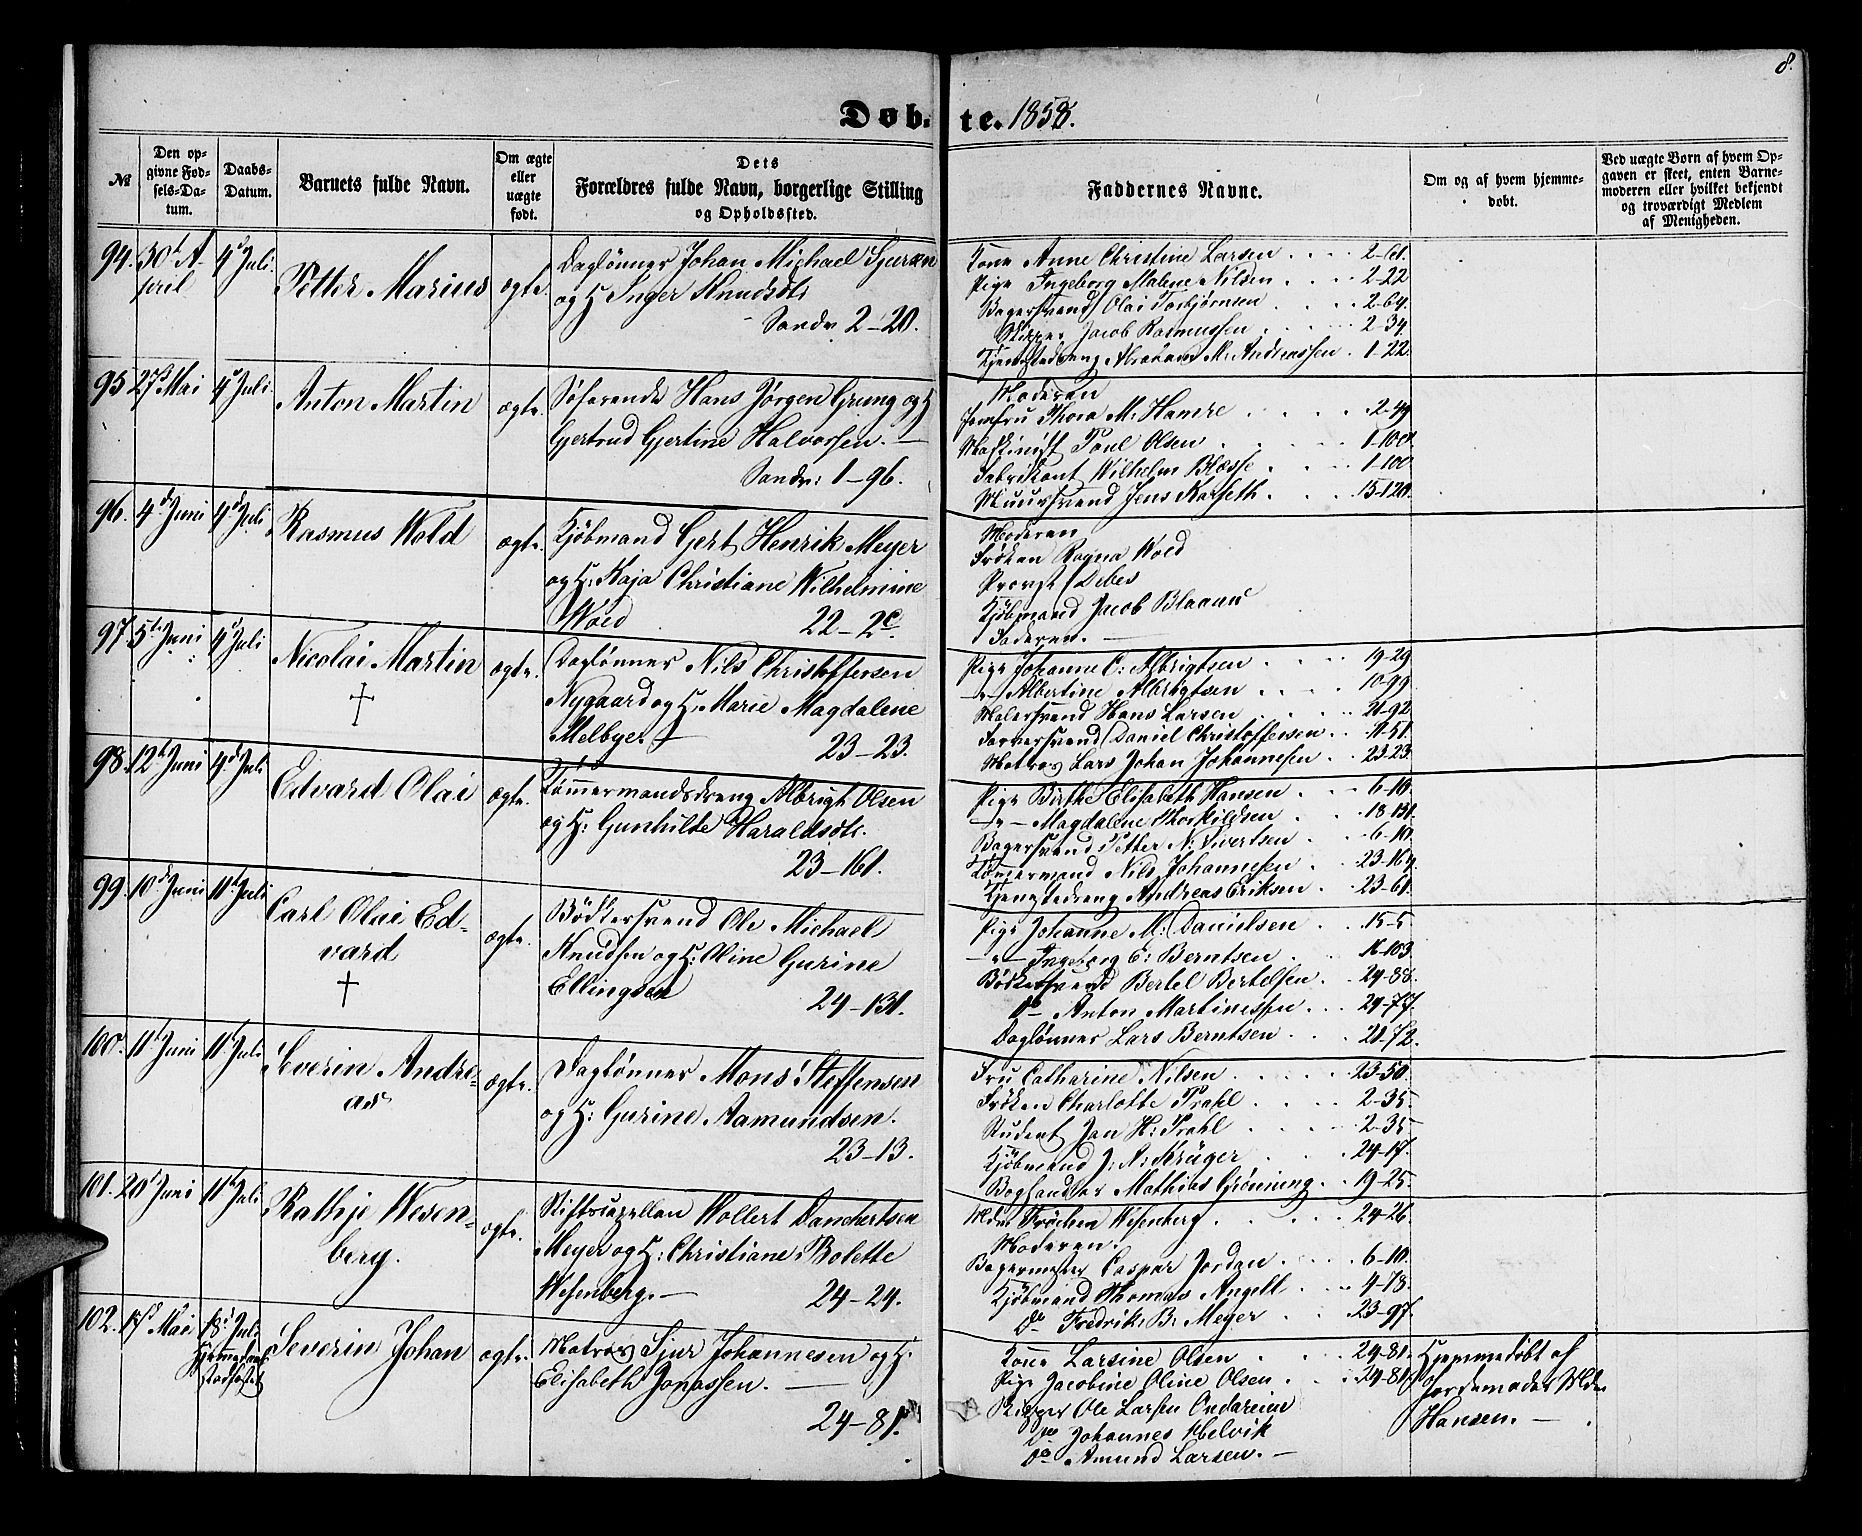 8.
Døbte. 1858.
№
Den opgivne Fødsels-Datum.
Daabs-Datum.
Barnets fulde Navn.
Om ægte eller uægte født.
Dets Forældres fulde Navn, borgerlige Stilling og Opholdssted.
Faddernes Navne.
Om og af hvem hjemmedøbt.
Ved uægte Børn af hvem Opgaven er skeet, enten Barnemoderen eller hvilket bekjendt og troværdigt Medlem af Menigheden.
94. 30te April 4de Juli Petter Marius ægte.
Dagløнner Johan Michael
og H Inger Knudsdtr
Sandv 2-20.
Kone Anne Christine Larsen 2-61.
Pige Ingeborg Malene Nilsen 2-22
Bagersvend Olai Torbjørnsen 2-64.
Skipper Jacob Rasmussen 2-34
Tjenestedreng Abraham M. Andreassen 1-22.
95 27de Mai 4de Juli Anton Martin ægte.
Søfarende Hans Jørgen Grung og H
Gertrud Gjertine Halvorsen. —
Sandv: 1-96.
Moderen
Jomfru Thora M. Hamre 2-49
Maskinist Poul Olsen 1-100.
Fabrikant Wilhelm Blæsse 1-100
Muursvend Jens Karseth 15-120.
96. 4de Juni 4de Juli Rasmus Wold ægte.
Kjøbmand Gert Henrik Meyer
og H: Kaja Christiane Wilhelmine
Wold 22-2c.
Moderen
Frøken Ragna Wold
Provst Debes
Kjøbmand Jacob Blaauw
Faderen. —
97. 5te Juni 4de Juli Nicolai Martin ægte.
†
Dagløнner Nils Christoffersen
Nygaard og H: Marie Magdalene
Melbye. — 23-23.
Pige Johanne C: Albrigtsen 19-29
-"- Albertine Albrigtsen 10-99
Malersvend Hans Larsen 21-92
Farversvend Daniel Christoffersen 11-51.
Matros Lars Johan Johannesen 23-23.
98. 12te Juni 4de Juli Edvard Olai ægte.
Tømmermandsdreng Albrigt Olsen
og H: Gunhilde Haraldsdtr.
23-161.
Pige Birthe Elisabeth Hansen 6-10.
-"- Magdalene Thorkildsen 18-131.
Bagersvend Petter N. Sivertsen 6-10.
Tømmermand Nils Johannesen 23-164.
Tjenestedreng Andreas Eriksen 23-61.
99. 10de Juni 11te Juli Carl Olai Edvard ægte.
†
Bødkersvend Ole Michael
Knudsen og H: Oline Gurine
Ellingsen 24-131.
Pige Johanne M: Danielsen 15-5
-"- Ingeborg E: Berntsen 16-103
Bødkersvend Bertel Bertelsen 24-88.
Do Anton Martinessen 24-77.
Dagløнner Lars Berntsen 21-72.
100. 11te Juni 11te Juli Severin Andreas ægte.
Dagløнner Mons Steffensen
og H: Gurine Aamundsen.
23-13.
Fru Catharine Nilsen 23-50.
Frøken Charlotte Prahl 2-35.
Student Jan H: Prahl 2-35
Kjøbmand J: A: Krüger 24-17.
Boghandler Mathias Grønning 19-25.
101. 20de Juni 11te Juli Kathje Wesenberg. ægte.
Stiftscapellan Wollert Danchertsen
Meyer og H: Christiane Bolette
Wesenberg. — 24-24.
Mdm Trøchen Wesenberg 24-26.
Moderen.
Bagermester Caspar Jordan 6-10.
Kjøbmand Thomas Angell 4-78.
Do Fredrik B: Meyer 23-97.
102. 17de Mai 18de Juli Severin Johan ægte.
Hjemmedaab
stadfæstet
Matros Sjur Johannesen og H.
Elisabeth Jonassen. —
24-81.
Kone Larsine Olsen 24-81.
Pige Jacobine Oline Olsen 24-81.
Skipper Ole Larsen
Do Johannes Helvik
Do Amund Larsen. —
Hjemmedøbt af
Jordemoder Mdm
Hansen. —